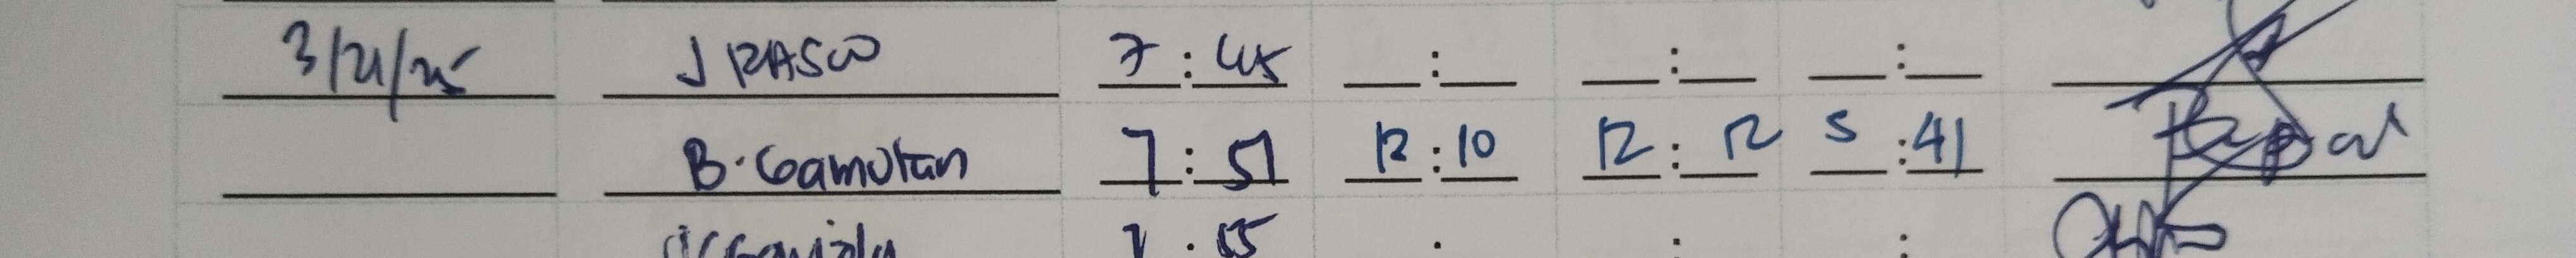 3/21/25 J RASCO 7:45 __:__ __:__ __:__
B. Gamutan 7:51 12:10 12:12 5:41
7:55